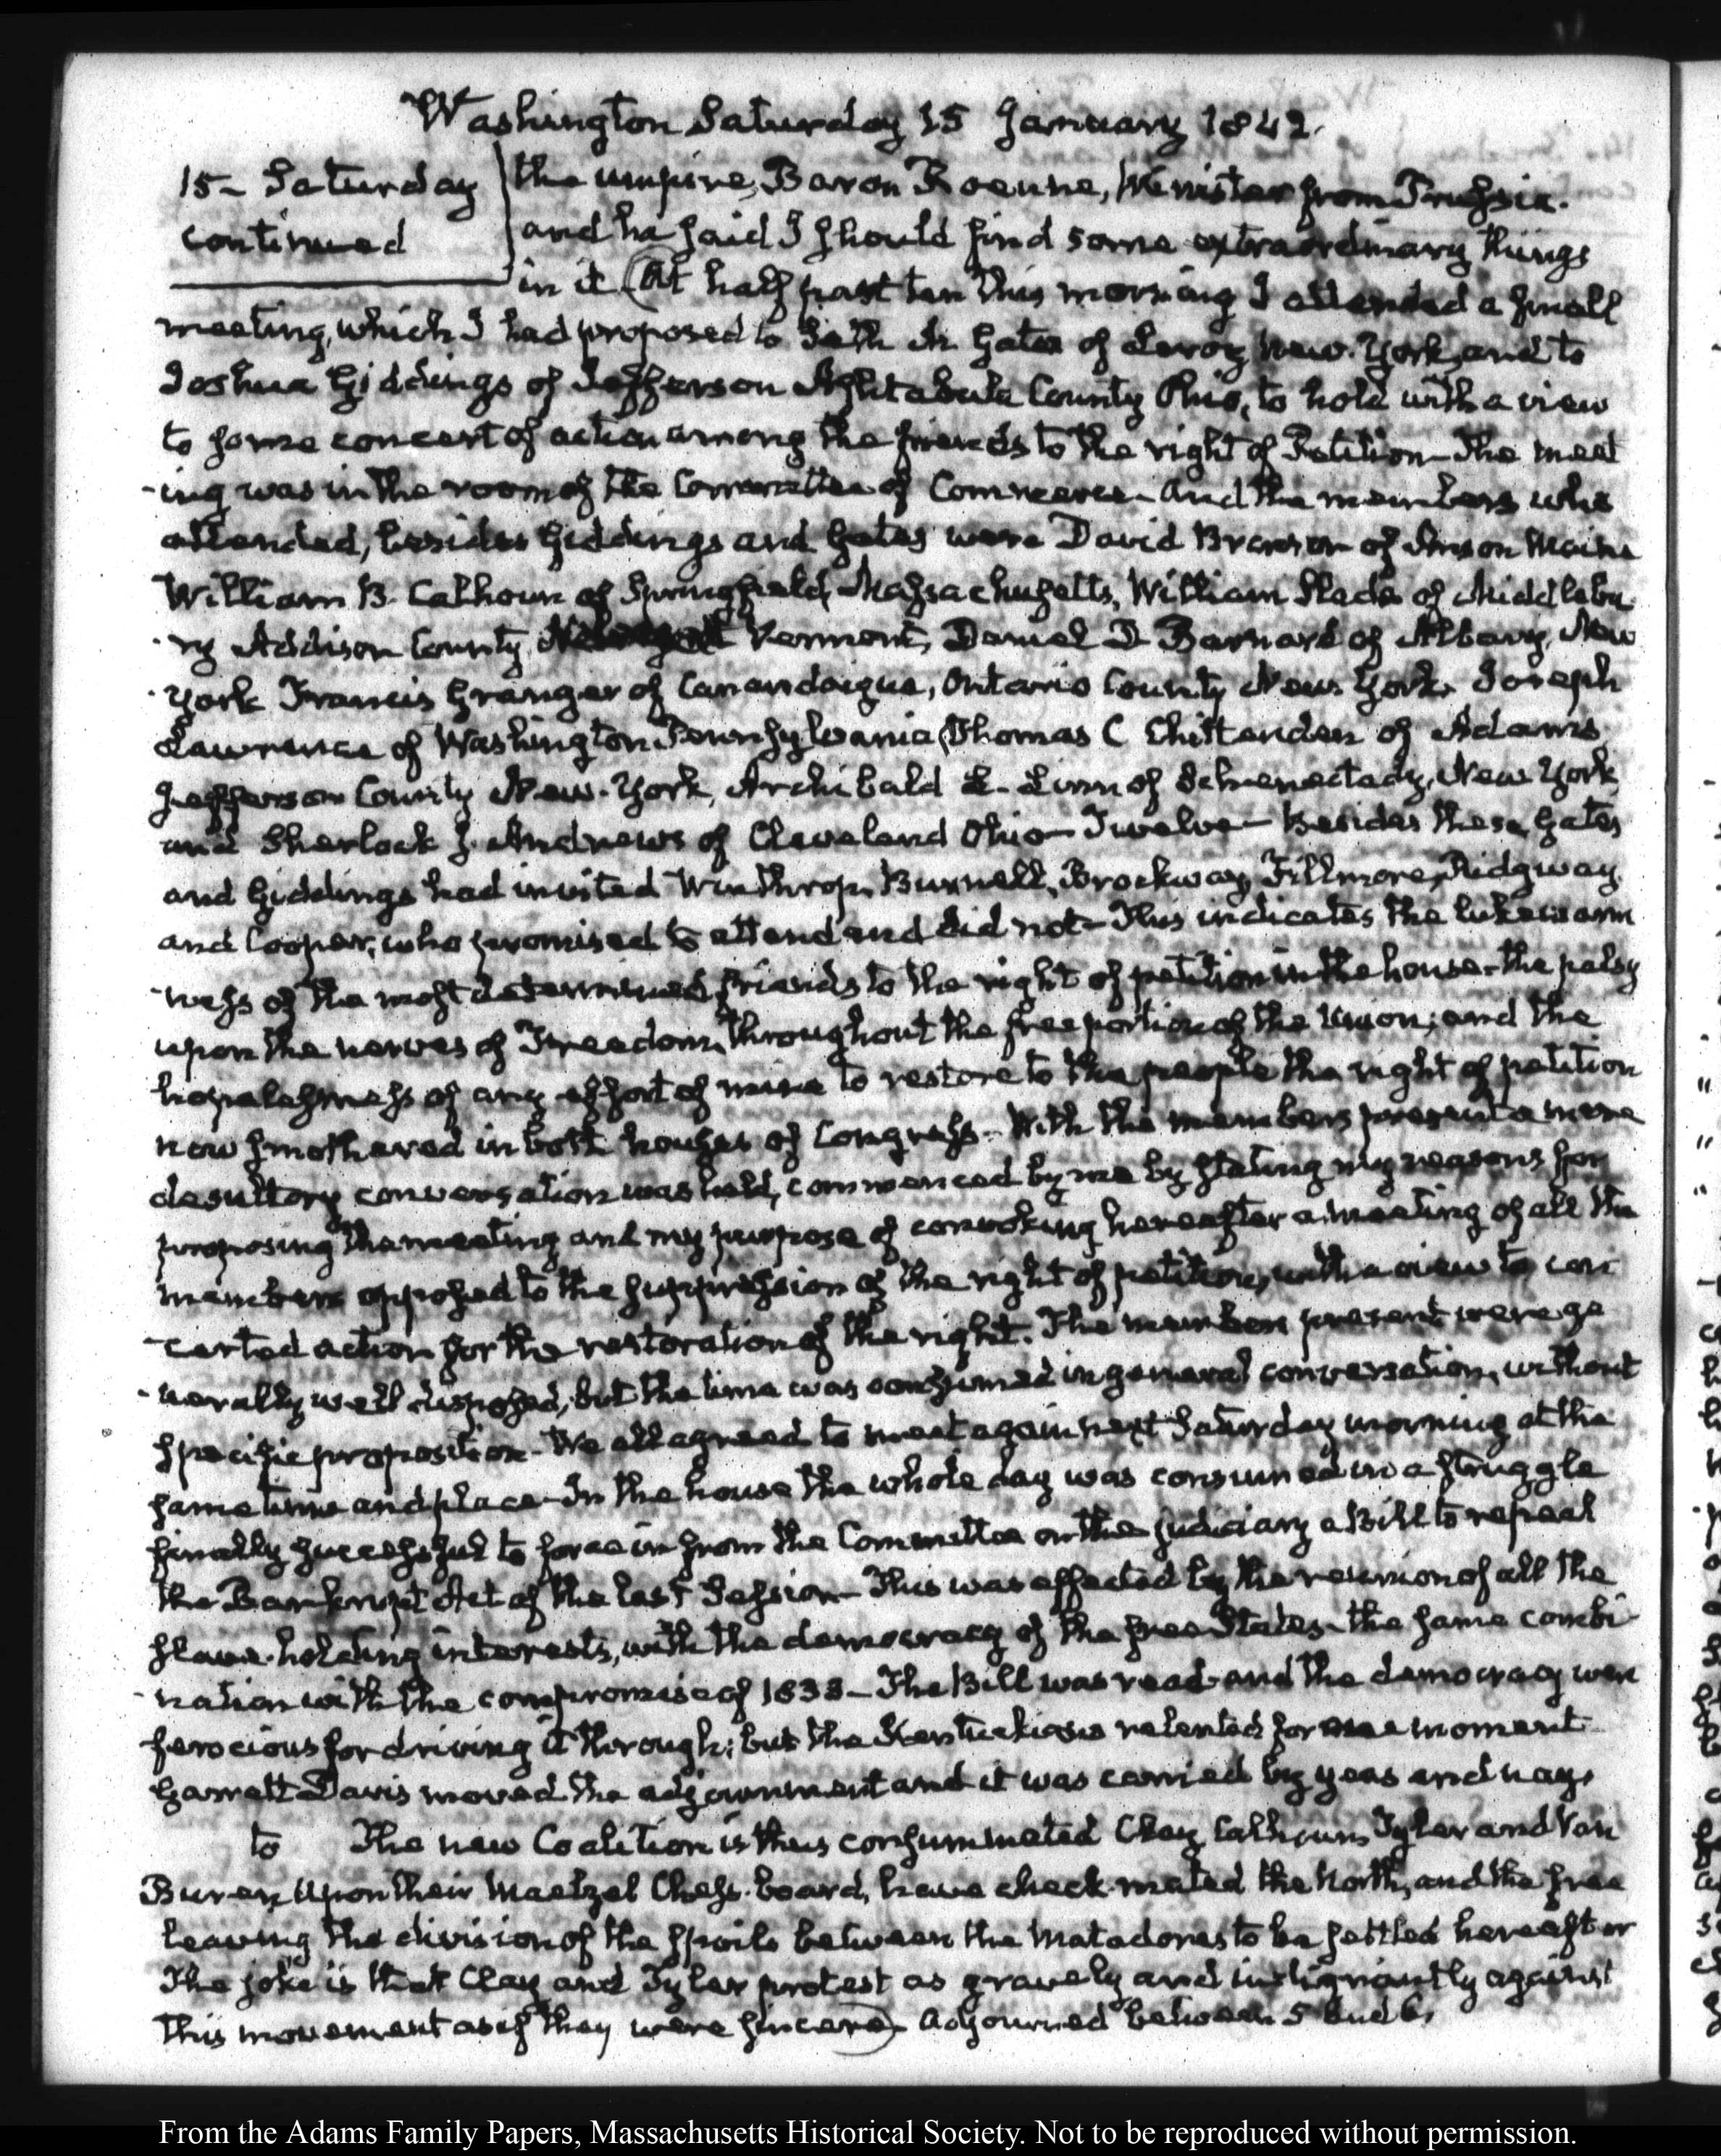 Washington Saturday 15 January 1842.
15– Saturday
continued
the umpire, Baron Roenne, Minister from Prussia.
and he said I should find some extraordinary things
in it (At half past ten this morning I attended a small
meeting, which I had proposed to Seth M. Gates of Leroy New-York, and to
Joshua Giddings of Jefferson Ashtabula County Ohio, to hold with a view
to some concert of action among the friends to the right of Petition– The meet
-ing was in the room of the Committee of Commerce– and the members who
attended, besides Giddings and Gates were David Bronson of Anson Maine
William B. Calhoun of Springfield, Massachusetts, William Slade of Middlebu
-ry Addison County Vermont, Daniel D Barnard of Albany, New
-York Francis Granger of Canandaigua, Ontario County New York. Joseph
Lawrence of Washington Pennsylvania, Thomas C Chittenden of Adams
Jefferson County New-York, Archibald L. Linn of Schenectady, New York
and Sherlock J. Andrews of Cleveland Ohio– Twelve– Besides these, Gates
and Giddings had invited Winthrop, Burnell, Brockway, Fillmore, Ridgway
and Cooper, who promised to attend and did not– This indicates the lukewarm
-ness of the most determined friends to the right of petition in the house– the palsy
upon the nerves of Freedom, throughout the free portion of the Union; and the
hopelessness of any effort of mine to restore to the people the right of petition
now smothered in both houses of Congress– With the members present a mere
desultory conversation was held, commenced by me by stating my reasons for
proposing the meeting and my purpose of convoking hereafter a meeting of all the
members opposed to the suppression of the right of petition, with a view to con
-certed action for the restoration of the right. The members present were ge
-nerally well disposed, but the time was consumed in general conversation, without
specific proposition– We all agreed to meet again next Saturday morning at the
same time and place– In the house the whole day was consumed in a struggle
finally successful to force in from the Committee on the judiciary a Bill to repeal
the Bankrupt Act of the last Session– This was effected by the reunion of all the
slave-holding interests, with the democracy of the free States– the same combi
-nation with the compromise of 1833– The Bill was read and the democracy were
ferocious for driving it through; but the Kentuckians relented for one moment
Garrett Davis moved the adjournment and it was carried by yeas and nays
to The new Coalition is thus consummated Clay Calhoun, Tyler and Van
Buren, upon their Maelzel Chess-board, have check-mated the North, and the free
leaving the division of the spoils between the Matadores to be settled hereafter
The joke is that Clay and Tyler protest as gravely and indignantly against
this movement as if they were sincere) Adjourned between 5 and 6,
From the Adams Family Papers, Massachusetts Historical Society. Not to be reproduced without permission.